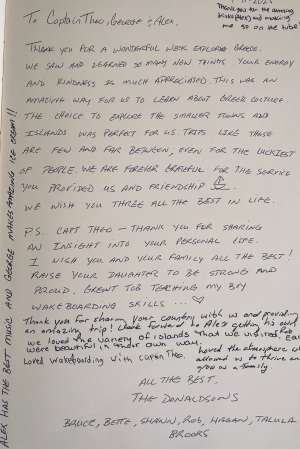 To Captain Theo, George & Alex.
Thank you for the amazing
and making
me go on the tube!
Thank you for a wonderful week exploring Greece.
We saw and learned so many new things. Your energy
and kindness is much appreciated. This was an
amazing way for us to learn about Greek culture.
The choice to explore the smaller towns and
islands was perfect for us. Trips like these
are few and far between, even for the luckiest
of people. We are forever grateful for the service
you provided us and friendship
We wish you three all the best in life.
P.S. Capt Theo – Thank you for sharing
an insight into your personal life.
I wish you and your family all the best!
Raise your daughter to be strong and
proud. Great job teaching my boy
wakeboarding skills ...
Thank you for sharing your country with us and providing
an amazing trip! I look forward to Alex getting his own
we loved the variety of islands that we visited,
were beautiful in their own way.
Loved wakeboarding with captn Theo.
I loved the atmosphere
allowed us to thrive and
grow as a family
All the best,
The Donaldsons
Bruce, Bette, Shawn, Rob, Hagan, Talula
Brooks
Alex has the best music and George makes amazing ice cream!!